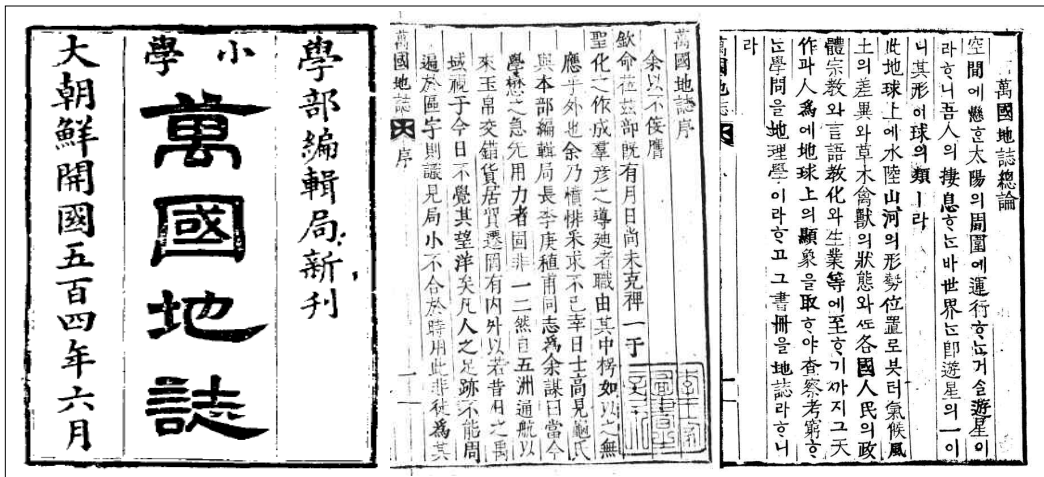 學部編輯局新刊
小學
萬國地誌
大朝鮮開國五百四年六月
萬國地誌序
余以不佞膺
欽命莅茲部既有月日尚未克裨一于
聖化之作成羣彦之導迪者職由其中楞如以之無
應乎外也余乃憤悱釆求不已幸日士高見龜氏
與本部編輯局長李庚稙甫同志爲余謀曰當今
學懋之急先用力者固非一二然自五洲通航以
來玉帛交錯貨居貿遷罔有內外以若昔用之禹
域視于今日不覺其望洋矣凡人之足跡不能周
遍於區宇則識見局小不合於時用此非徒爲其
萬國地誌 序 一
萬國地誌總論
空間에懸ᄒᆞᆫ太陽의周圍에運行ᄒᆞᄂᆞᆫ거슬遊星이
라ᄒᆞ니吾人의捿息ᄒᆞᄂᆞᆫ바世界ᄂᆞᆫ卽遊星의一이
니其形이球의類ㅣ라
此地球上에水陸山河의形勢位置로붓터氣候風
土의差異와草木禽獸의狀態와ᄯᅩ各國人民의政
體宗教와言語敎化와生業等에至ᄒᆞ기까지그天
作과人爲에地球上의顯象을取ᄒᆞ야査察考窮ᄒᆞ
ᄂᆞᆫ學問을地理學이라ᄒᆞ고그書冊을地誌라ᄒᆞ니
라
萬國地誌